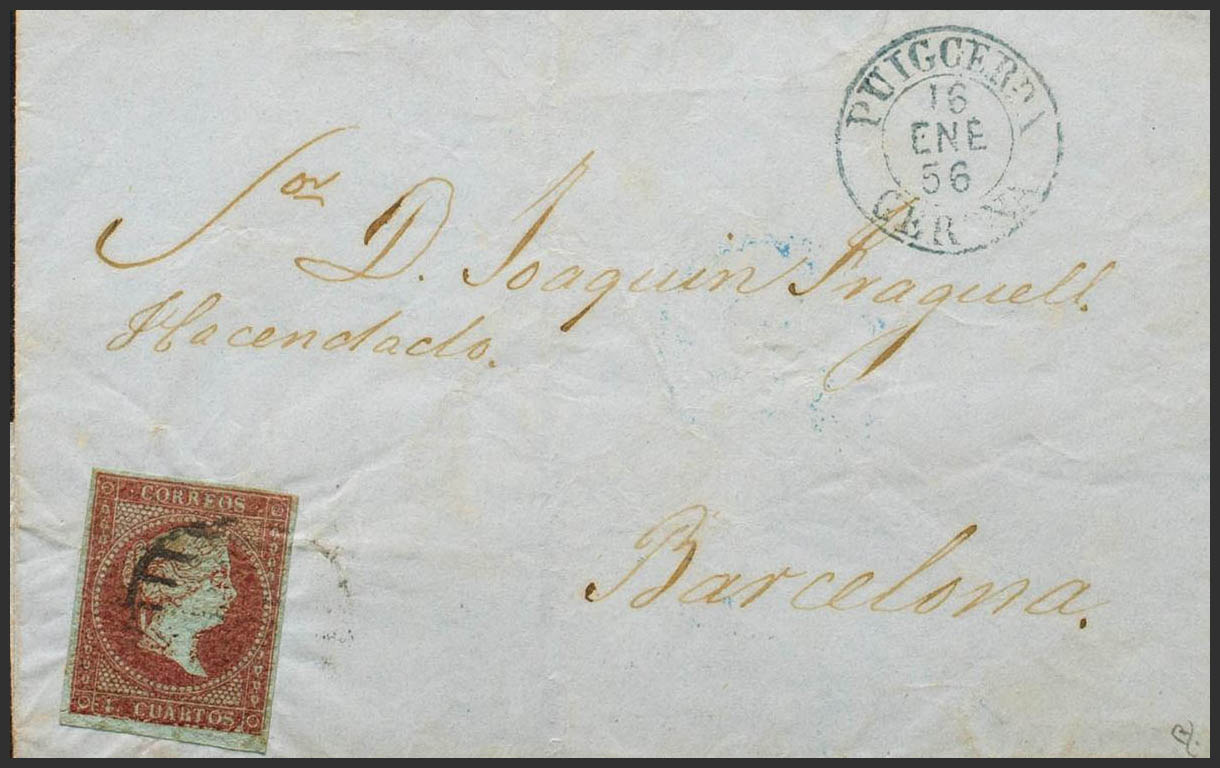 PUIGCERDA
16
ENE
56
GERONA
Sor D. Joaquin Fraguell.
Hacendado.
Barcelona.
CORREOS
CUARTOS